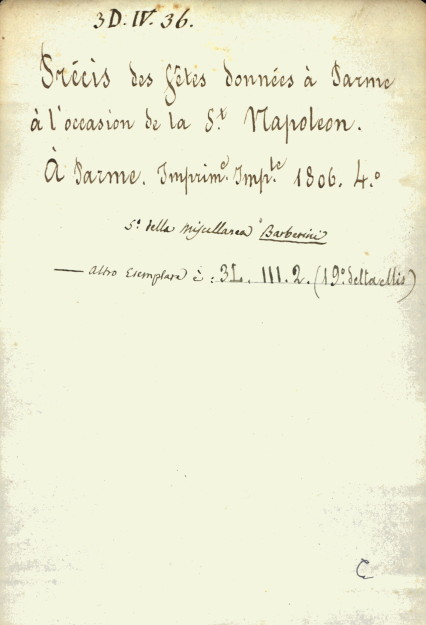 3D.IV.36.
Précis des fêtes données à Parme
à l'occasion de la S.t Napoleon.
À Parme. Imprim.e Imp.le 1806. 4.º
5.º della miscellanea "Barberini
— altro esemplare è: 3L. III. 2. (19.º della Mis)
C